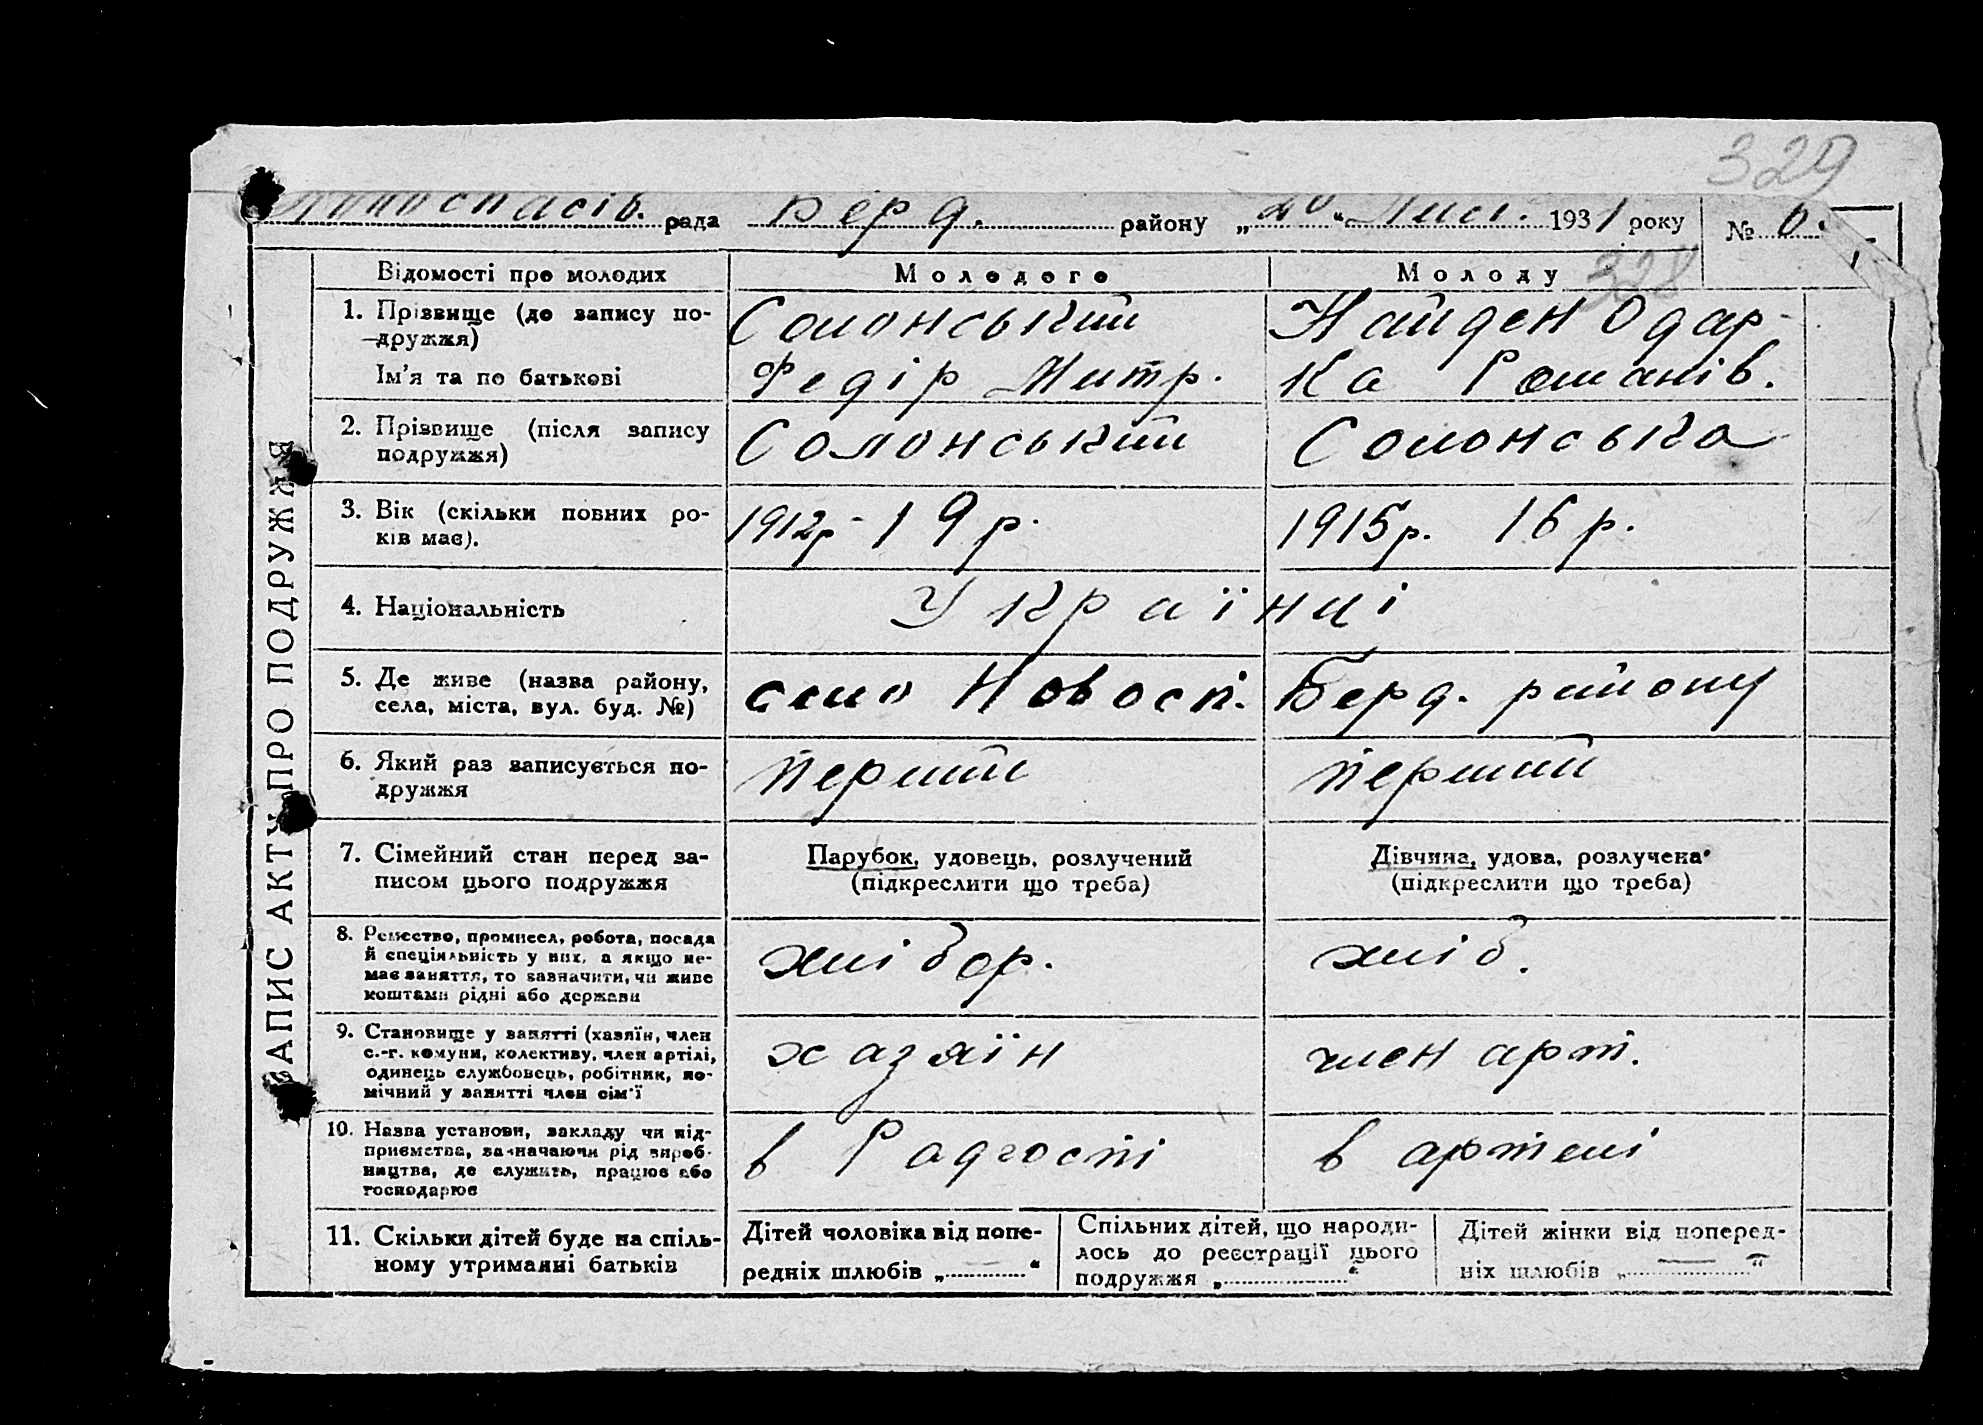 329
Новоспасів. рада Берд. району „20“ Лист. 1931 року № 6.
328
ЗАПИС АКТУ ПРО ПОДРУЖЖЯ
Відомості про молодих Молодого Молоду
1. Прізвище (до запису по-
дружжя)
Ім'я та по батькові
Солонський
Федір Митр.
Найден Одар-
ка Романів.
2. Прізвище (після запису
подружжя)
Солонський
Солонська
3. Вік (скільки повних ро-
ків має).
1912р - 19 р.
1915р. 16 р.
4. Національність
Українці
5. Де живе (назва району,
села, міста, вул. буд. №)
село Новосп. Берд. району
6. Який раз записується по-
дружжя
перший
перший
7. Сімейний стан перед за-
писом цього подружжя
Парубок, удовець, розлучений
(підкреслити що треба)
Дівчина, удова, розлучена
(підкреслити що треба)
8. Ремество, промисел, робота, посада
й спеціяльність у них, а якщо не-
має заняття, то зазначити, чи живе
коштами рідні або держави
хлібор.
хліб.
9. Становище у занятті (хазяїн, член
с.-г. комуни, колективу, член артілі,
одинець службовець, робітник, по-
мічний у занятті член сім'ї
хазяїн
член арт.
10. Назва установи, закладу чи під-
приємства, зазначаючи рід вироб-
ництва, де служить, працює або
господарює
в Радгоспі
в артелі
11. Скільки дітей буде на спіль-
ному утриманні батьків
Дітей чоловіка від попе-
редніх шлюбів „—“
Спільних дітей, що народи-
лось до реєстрації цього
подружжя „ “
Дітей жінки від поперед-
ніх шлюбів „—“